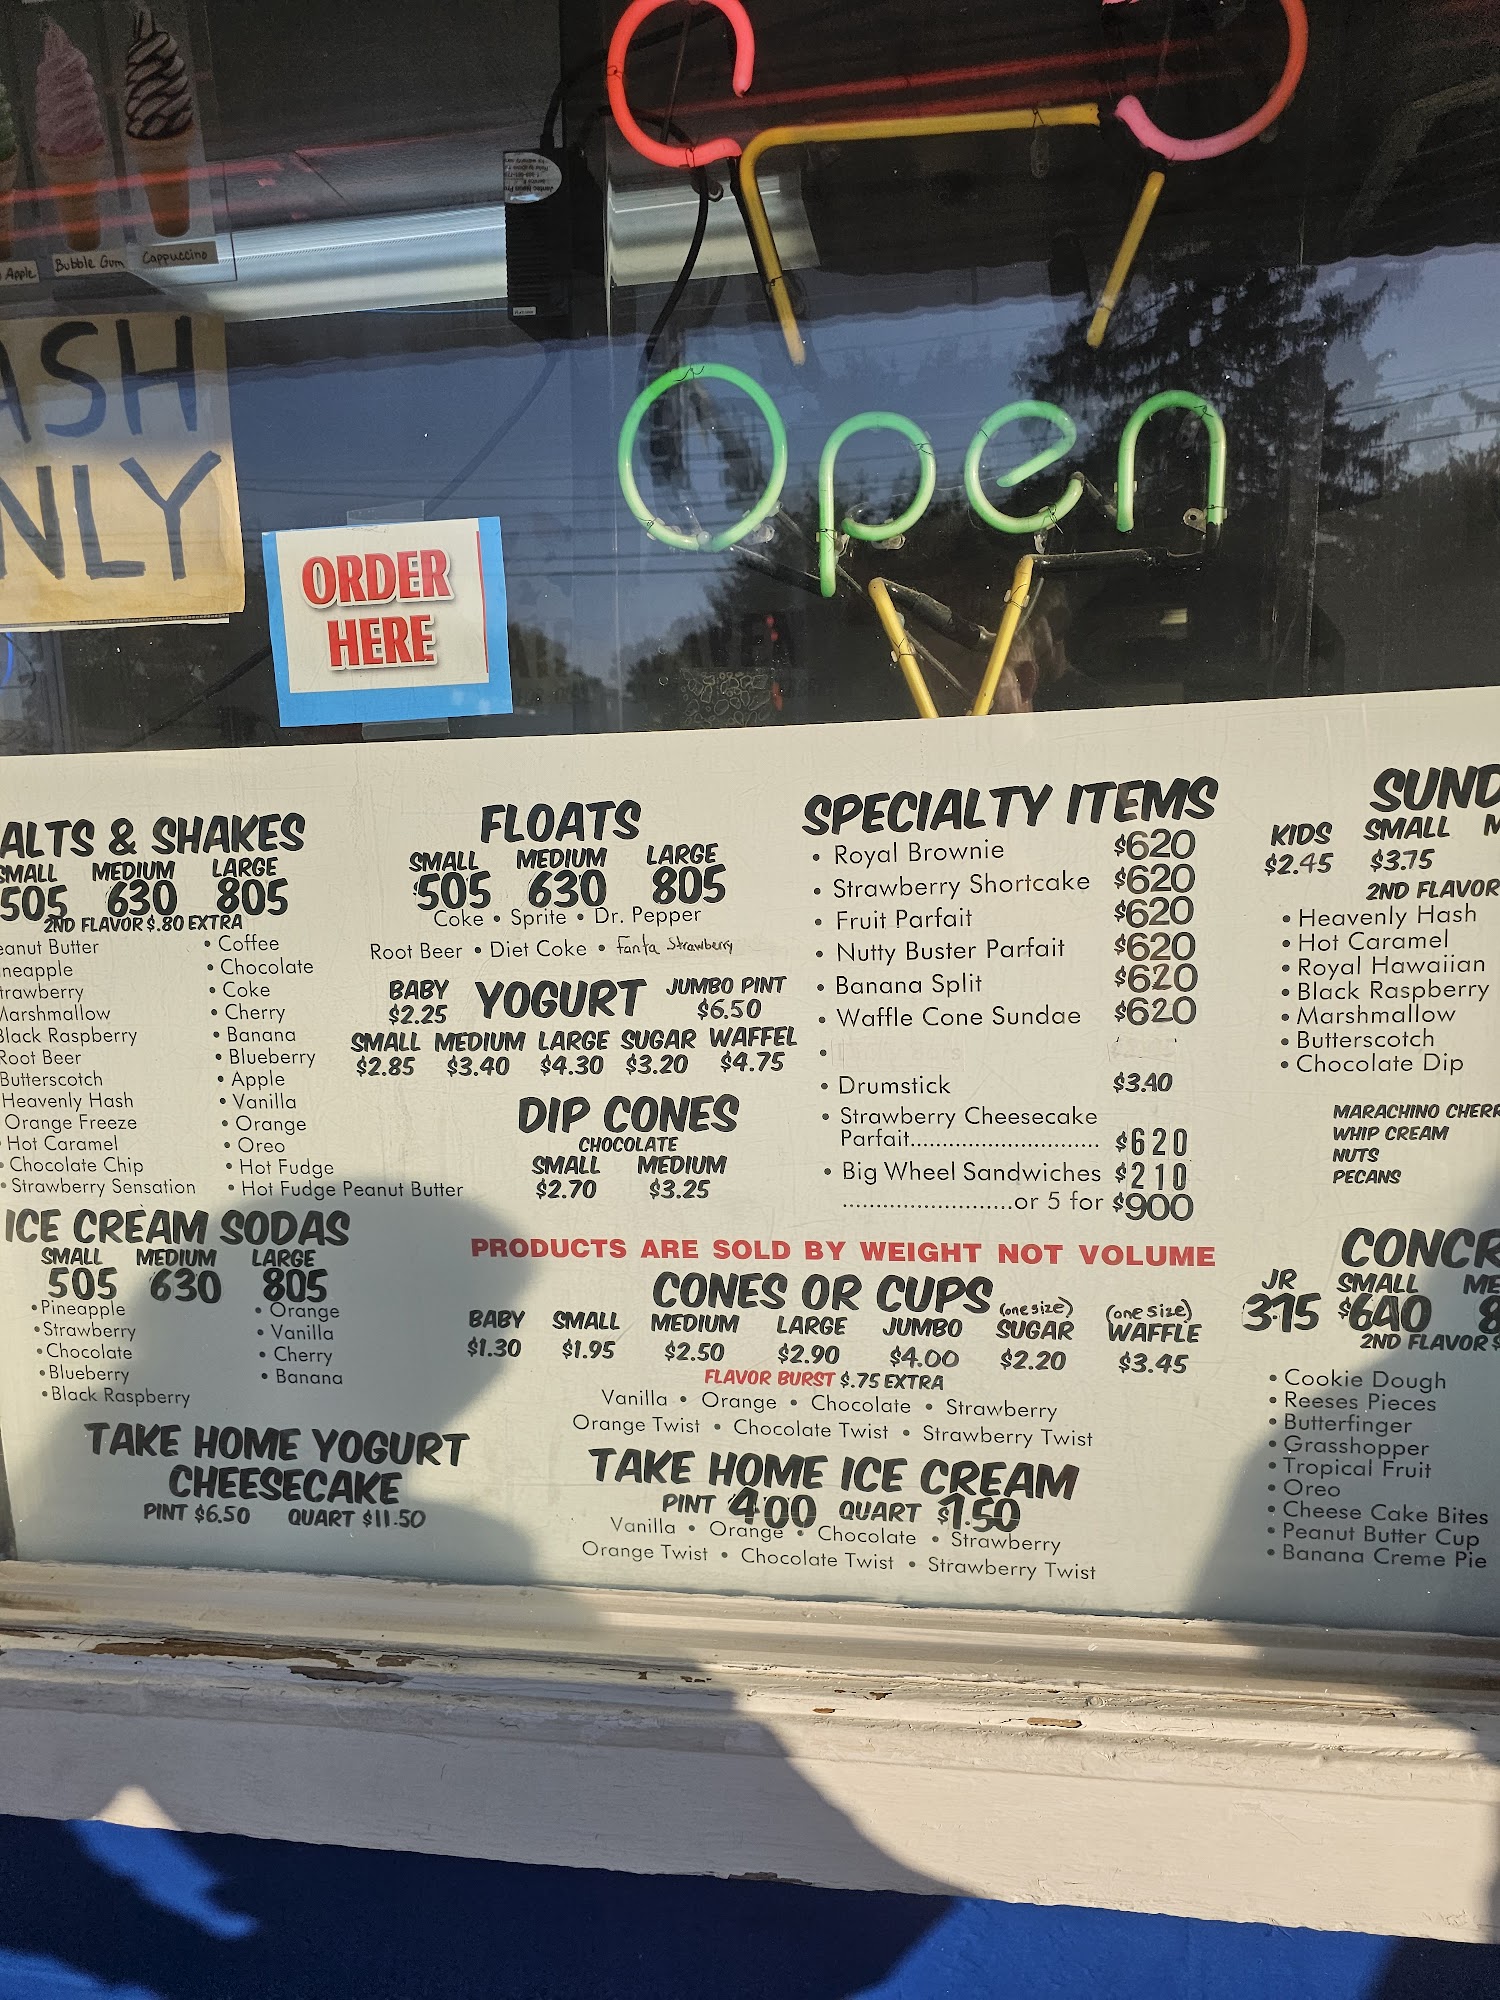 Apple
Bubble Gum
Cappuccino
ASH
NLY
ORDER
HERE
Open
ALTS & SHAKES
SMALL MEDIUM LARGE
505 630 805
2ND FLAVOR $.80 EXTRA
eanut Butter
neapple
trawberry
Marshmallow
Black Raspberry
Root Beer
Butterscotch
Heavenly Hash
Orange Freeze
• Hot Caramel
• Chocolate Chip
• Strawberry Sensation
• Coffee
• Chocolate
• Coke
• Cherry
• Banana
• Blueberry
• Apple
• Vanilla
• Orange
• Oreo
• Hot Fudge
• Hot Fudge Peanut Butter
ICE CREAM SODAS
SMALL MEDIUM LARGE
505 630 805
• Pineapple
• Strawberry
• Chocolate
• Blueberry
• Black Raspberry
• Orange
• Vanilla
• Cherry
• Banana
TAKE HOME YOGURT
CHEESECAKE
PINT $6.50 QUART $11.50
FLOATS
SMALL MEDIUM LARGE
505 630 805
Coke • Sprite • Dr. Pepper
Root Beer • Diet Coke • Fanta Strawberry
BABY YOGURT JUMBO PINT
$2.25 $6.50
SMALL MEDIUM LARGE SUGAR WAFFEL
$2.85 $3.40 $4.30 $3.20 $4.75
DIP CONES
CHOCOLATE
SMALL MEDIUM
$2.70 $3.25
SPECIALTY ITEMS
• Royal Brownie $620
• Strawberry Shortcake $620
• Fruit Parfait $620
• Nutty Buster Parfait $620
• Banana Split $620
• Waffle Cone Sundae $620
• Drumstick $3.40
• Strawberry Cheesecake
Parfait............................ $620
• Big Wheel Sandwiches $210
..........................or 5 for $900
PRODUCTS ARE SOLD BY WEIGHT NOT VOLUME
CONES OR CUPS
(one size) (one size)
BABY SMALL MEDIUM LARGE JUMBO SUGAR WAFFLE
$1.30 $1.95 $2.50 $2.90 $4.00 $2.20 $3.45
FLAVOR BURST $.75 EXTRA
Vanilla • Orange • Chocolate • Strawberry
Orange Twist • Chocolate Twist • Strawberry Twist
TAKE HOME ICE CREAM
PINT 4.00 QUART $7.50
Vanilla • Orange • Chocolate • Strawberry
Orange Twist • Chocolate Twist • Strawberry Twist
SUND
KIDS SMALL M
$2.45 $3.75
2ND FLAVOR
• Heavenly Hash
• Hot Caramel
• Royal Hawaiian
• Black Raspberry
• Marshmallow
• Butterscotch
• Chocolate Dip
MARACHINO CHERR
WHIP CREAM
NUTS
PECANS
CONCR
JR SMALL ME
315 $640 8
2ND FLAVOR $
• Cookie Dough
• Reeses Pieces
• Butterfinger
• Grasshopper
• Tropical Fruit
• Oreo
• Cheese Cake Bites
• Peanut Butter Cup
• Banana Creme Pie